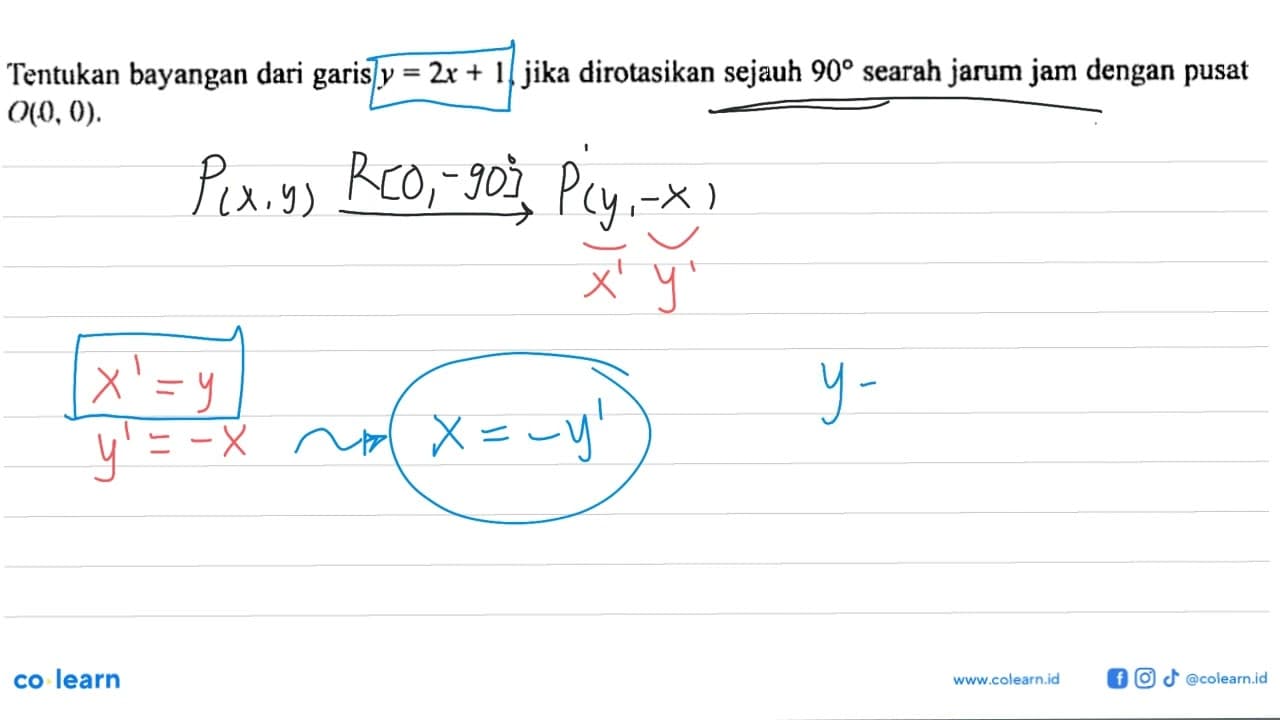 Tentukan bayangan dari garis y = 2x + 1, jika dirotasikan sejauh 90° searah jarum jam dengan pusat
O(0, 0).
P(x,y) R[0,-90°] P'(y,-x)
x' y'
x' = y
y' = -x x = -y'
y -
co learn
www.colearn.id @colearn.id